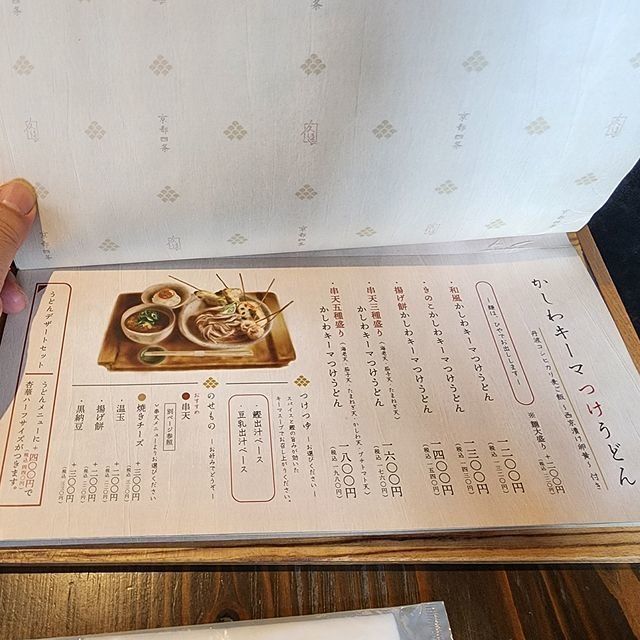 かしわキーマつけうどん
丹波コシヒカリ麦ご飯 〜西京漬け卵黄〜 付き
※麺大盛り +二〇〇円
〜麺は、ひやでお出しします〜
・和風かしわキーマつけうどん 一二〇〇円
（税込 一三二〇円）
・きのこかしわキーマつけうどん 一三〇〇円
・揚げ餅かしわキーマつけうどん 一四〇〇円
（税込 一五四〇円）
・串天三種盛り（海老天・茄子天・たまねぎ天）
かしわキーマつけうどん 一六〇〇円
（税込 一七六〇円）
・串天五種盛り（海老天・茄子天・たまねぎ天・かしわ天・プチトマト天）
かしわキーマつけうどん 一八〇〇円
（税込 一九八〇円）
つけつゆ 〜お選びください〜
スパイスと鰹の旨みが効いた
キーマスープでお召し上がりください。
・鰹出汁ベース
・豆乳出汁ベース
のせもの 〜お好みでどうぞ〜
おすすめ
串天 別ページ参照
＞串天メニューよりお選びください
焼きチーズ
温玉
揚げ餅
黒納豆
うどんデザートセット
うどんメニューに+四〇〇円で
（税込 四四〇円）
杏華ハーフサイズがつきます。
京都四条
京都四条
京都四条
京都四条